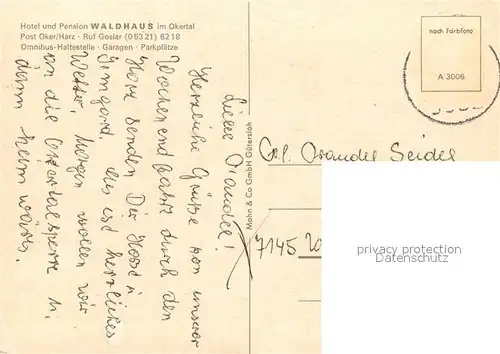 Hotel und Pension WALDHAUS im Okertal
Post Oker/Harz · Ruf Goslar (0 53 21) 62 18
Omnibus-Haltestelle · Garagen · Parkplätze
nach Farbfoto
A 3006
Liebe
Herzliche Grüße von unserer
Wochenendfahrt durch den
Harz senden Dir Horst u.
Irmgard. Es ist herrliches
Wetter. Morgen wollen wir
an die Okertalsperre u.
dann heimwärts.
Mohn & Co GmbH Gütersloh
Seidel
7145
privacy protection
Datenschutz